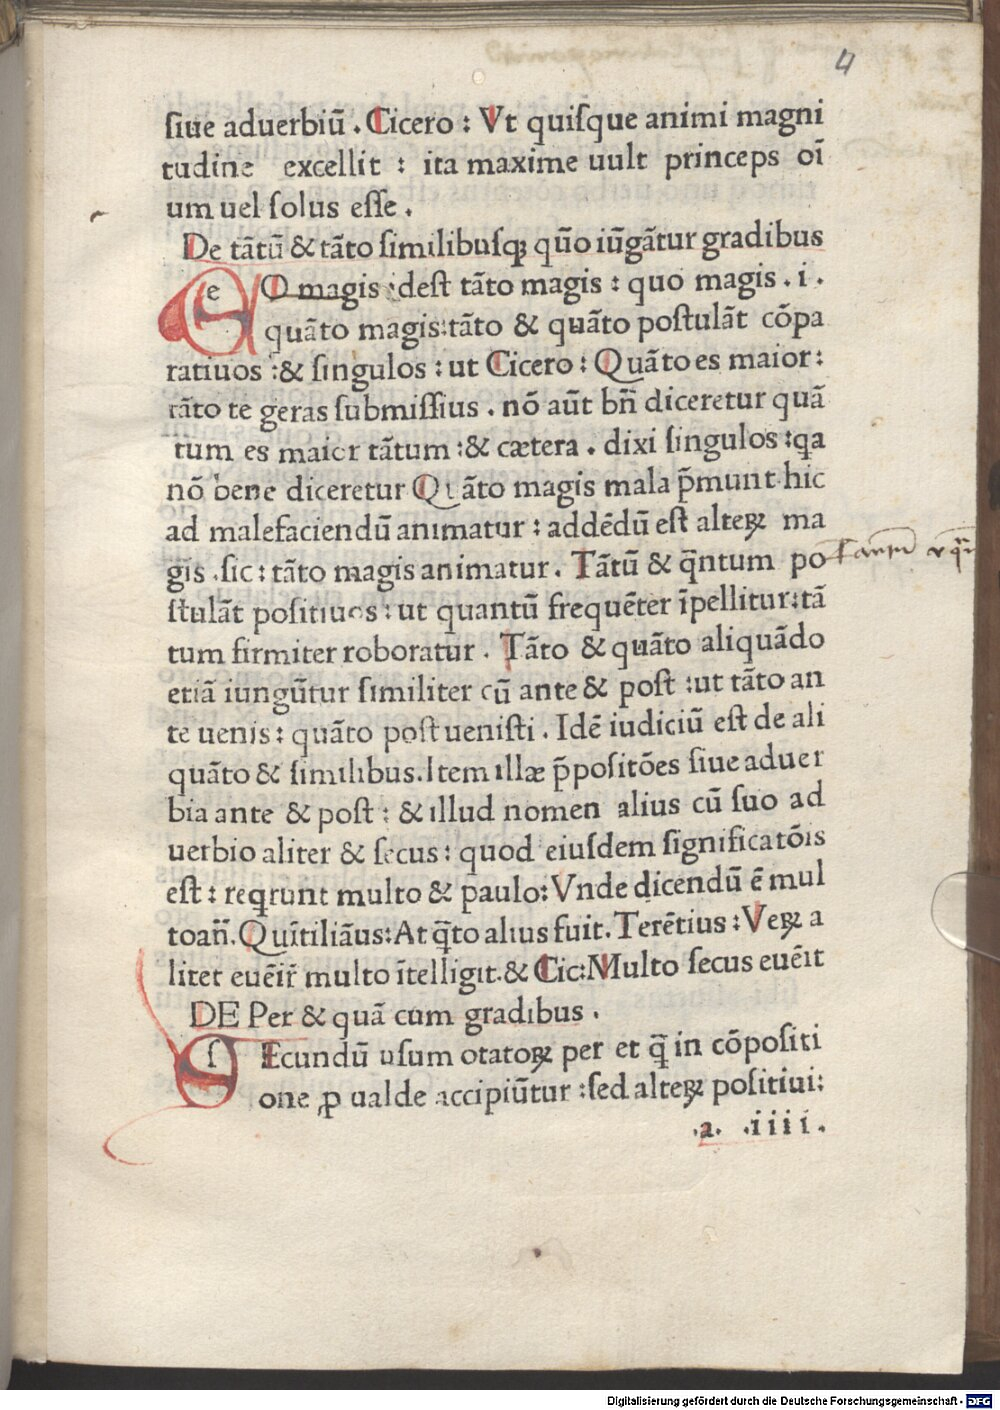 4
ſiue aduerbiū . Cicero : Vt quiſque animi magni
tudine excellit : ita maxime uult princeps oī
um uel ſolus eſſe .
De tātū & tāto ſimilibuſqꝫ quōo iūgātur gradibus
EO magis :deſt tāto magis : quo magis . i .
quāto magis:tāto & quāto poſtulāt cōpa
ratiuos :& ſingulos : ut Cicero : Quāto es maior :
tāto te geras ſubmiſſius . nō aūt bn̄ diceretur quā
tum es maior tātum :& cætera . dixi ſingulos :qa
nō bene diceretur Quāto magis mala p̄munt hic
ad malefaciendū animatur : addēdū eſt alteꝝ ma
gis .ſic : tāto magis animatur . Tātū & q̄ntum po
ſtulāt poſitiuos : ut quantū frequēter īpellitur:tā
tum firmiter roboratur . Tāto & quāto aliquādo
etiā iungūtur ſimiliter cū ante & poſt :ut tāto an
te uenis : quāto poſt ueniſti . Idē iudiciū eſt de ali
quāto & ſimilibus.Item illæ p̄poſitōes ſiue aduer
bia ante & poſt : & illud nomen alius cū ſuo ad
uerbio aliter & ſecus : quod eiuſdem ſignificatōis
eſt : reqrunt multo & paulo: Vnde dicendū ē mul
toan̄. Quītiliāus:At q̄to alius fuit. Terētius : Veꝝ a
liter euēir̄ multo ītelligit.& Cic:Multo ſecus euēit
DE Per & quā cum gradibus .
SEcundū uſum otatoꝝ per et q̄ in cōpoſiti
one ꝓ ualde accipiūtur :ſed alteꝝ poſitiui:
.a. .iiii.
Digitalisierung gefördert durch die Deutsche Forschungsgemeinschaft - DFG